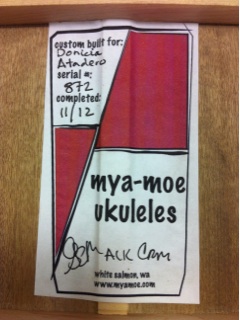 custom built for:
Donicia
Atadero
serial #:
872
completed:
11/12
mya-moe
ukuleles
ACK CRM
white salmon, wa
www.myamoe.com